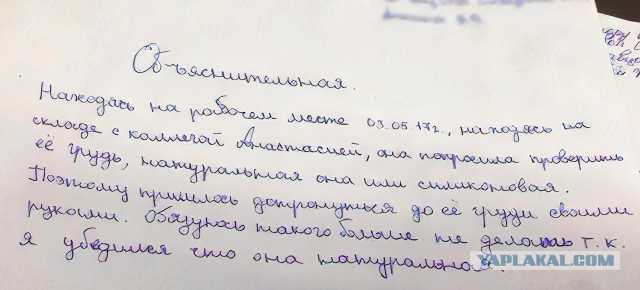 Объяснительная.
Находясь на рабочем месте 03.05.17г., находясь на
складе с коллегой Анастасией, она попросила проверить
её грудь, натуральная она или силиконовая.
Поэтому пришлось дотронуться до её груди своими
руками. Обязуюсь такого больше не делать т.к.
я убедился что она натуральная.
YAPLAKAL.COM